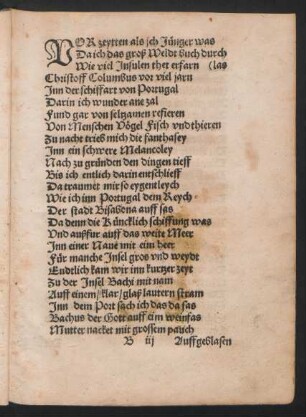 VOR zeytten als jch Jünger was
Da ich das groß Weldt buch durch
Wie viel Insulen ther erfarn (las
Christoff Columbus vor viel jarn
Inn der schiffart von Portugal
Darin ich wunder ane zal
Fund gar von seltzamen refieren
Von Menschen Vögel Fisch vnd thieren
Zu nacht trieb mich die fanthasey
Inn ein schwere Melancoley
Nach zu gründen den dingen tieff
Bis ich entlich darin entschlieff
Da traumet mir so eygentleych
Wie ich inn Portugal dem Reych
Der stadt Bisabona auff sas
Da denn die Küncklich schiffung was
Vnd außfur auff das weite Meer
Inn einer Naue mit eim heer
Für manche Insel gros vnd weydt
Endtlich kam wir inn kurtzer zeyt
Zu der Insel Bachi mit nam
Auff einem/klar/glaß lautern stram
Inn dem Port sach ich das da sas
Bachus der Gott auff eim weinfas
Mutter nacket mit grossem pauch
B iij Auffgeblasen